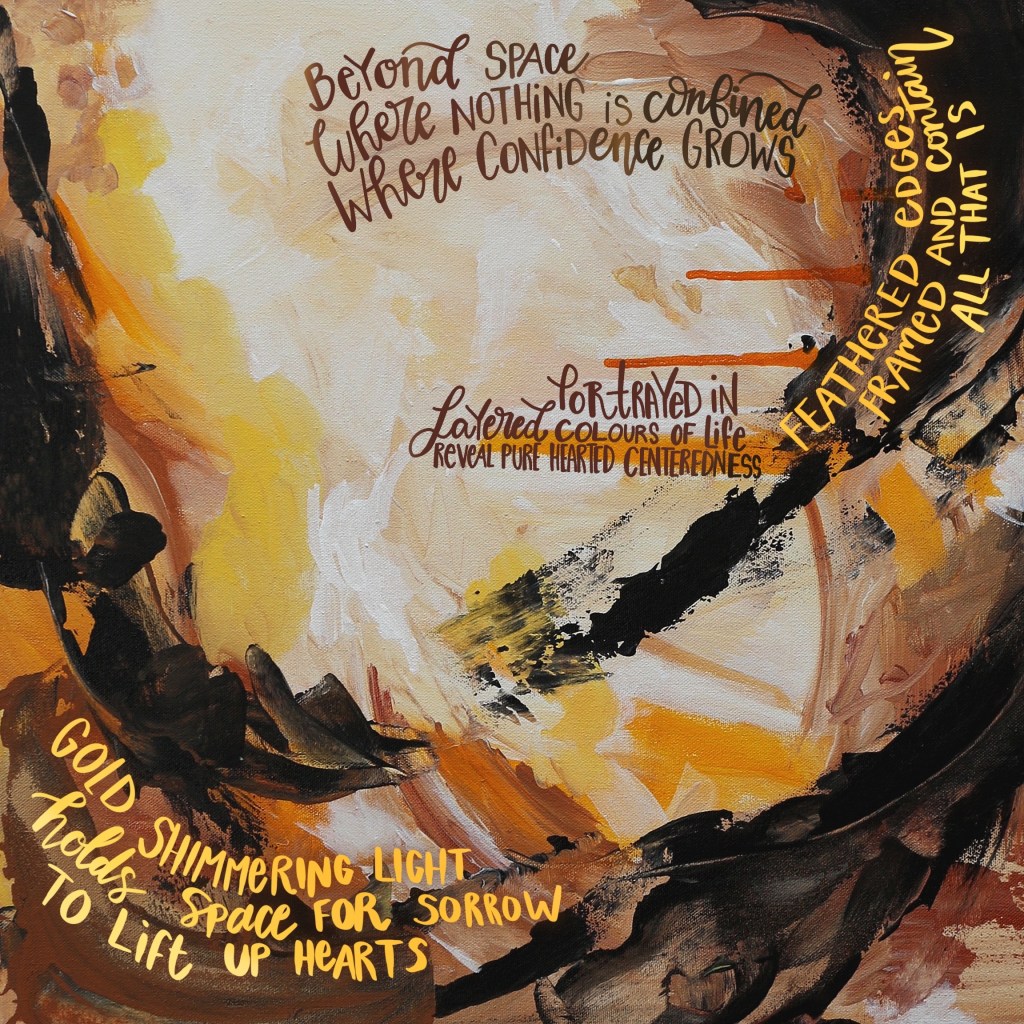 Beyond SPACE
Where NOTHING is confined
Where CONFIDENCE GROWS
FEATHERED EDGES
FRAMED AND contain
ALL THAT IS
PORTRAYED IN
Layered COLOURS OF Life
REVEAL PURE HEARTED CENTEREDNESS
GOLD SHIMMERING LIGHT
holds Space FOR SORROW
TO Lift UP HEARTS